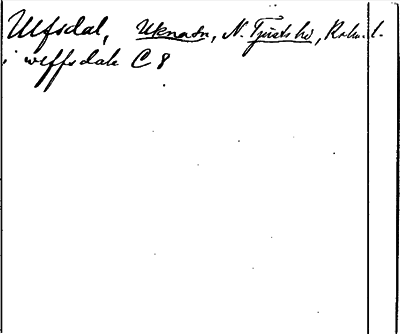 Ulfsdal, Uknasn, N. Tjusts hd, Kalm. l.
i wlffsdale C 8